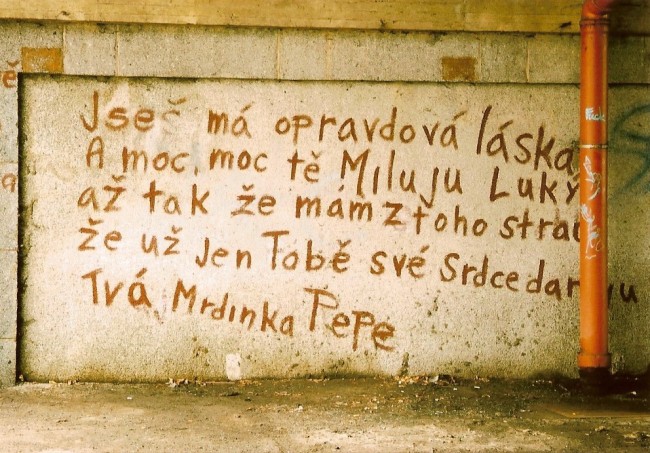 Jseč má opravdová láska
A moc, moc tě Miluju Luky
až tak že mám z toho stra
že už jen Tobě své Srdce dar u
Tvá Mrdinka Pepe